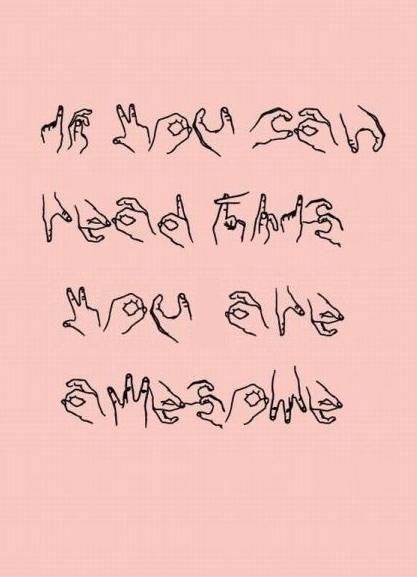 if you can
read this
you are
awesome